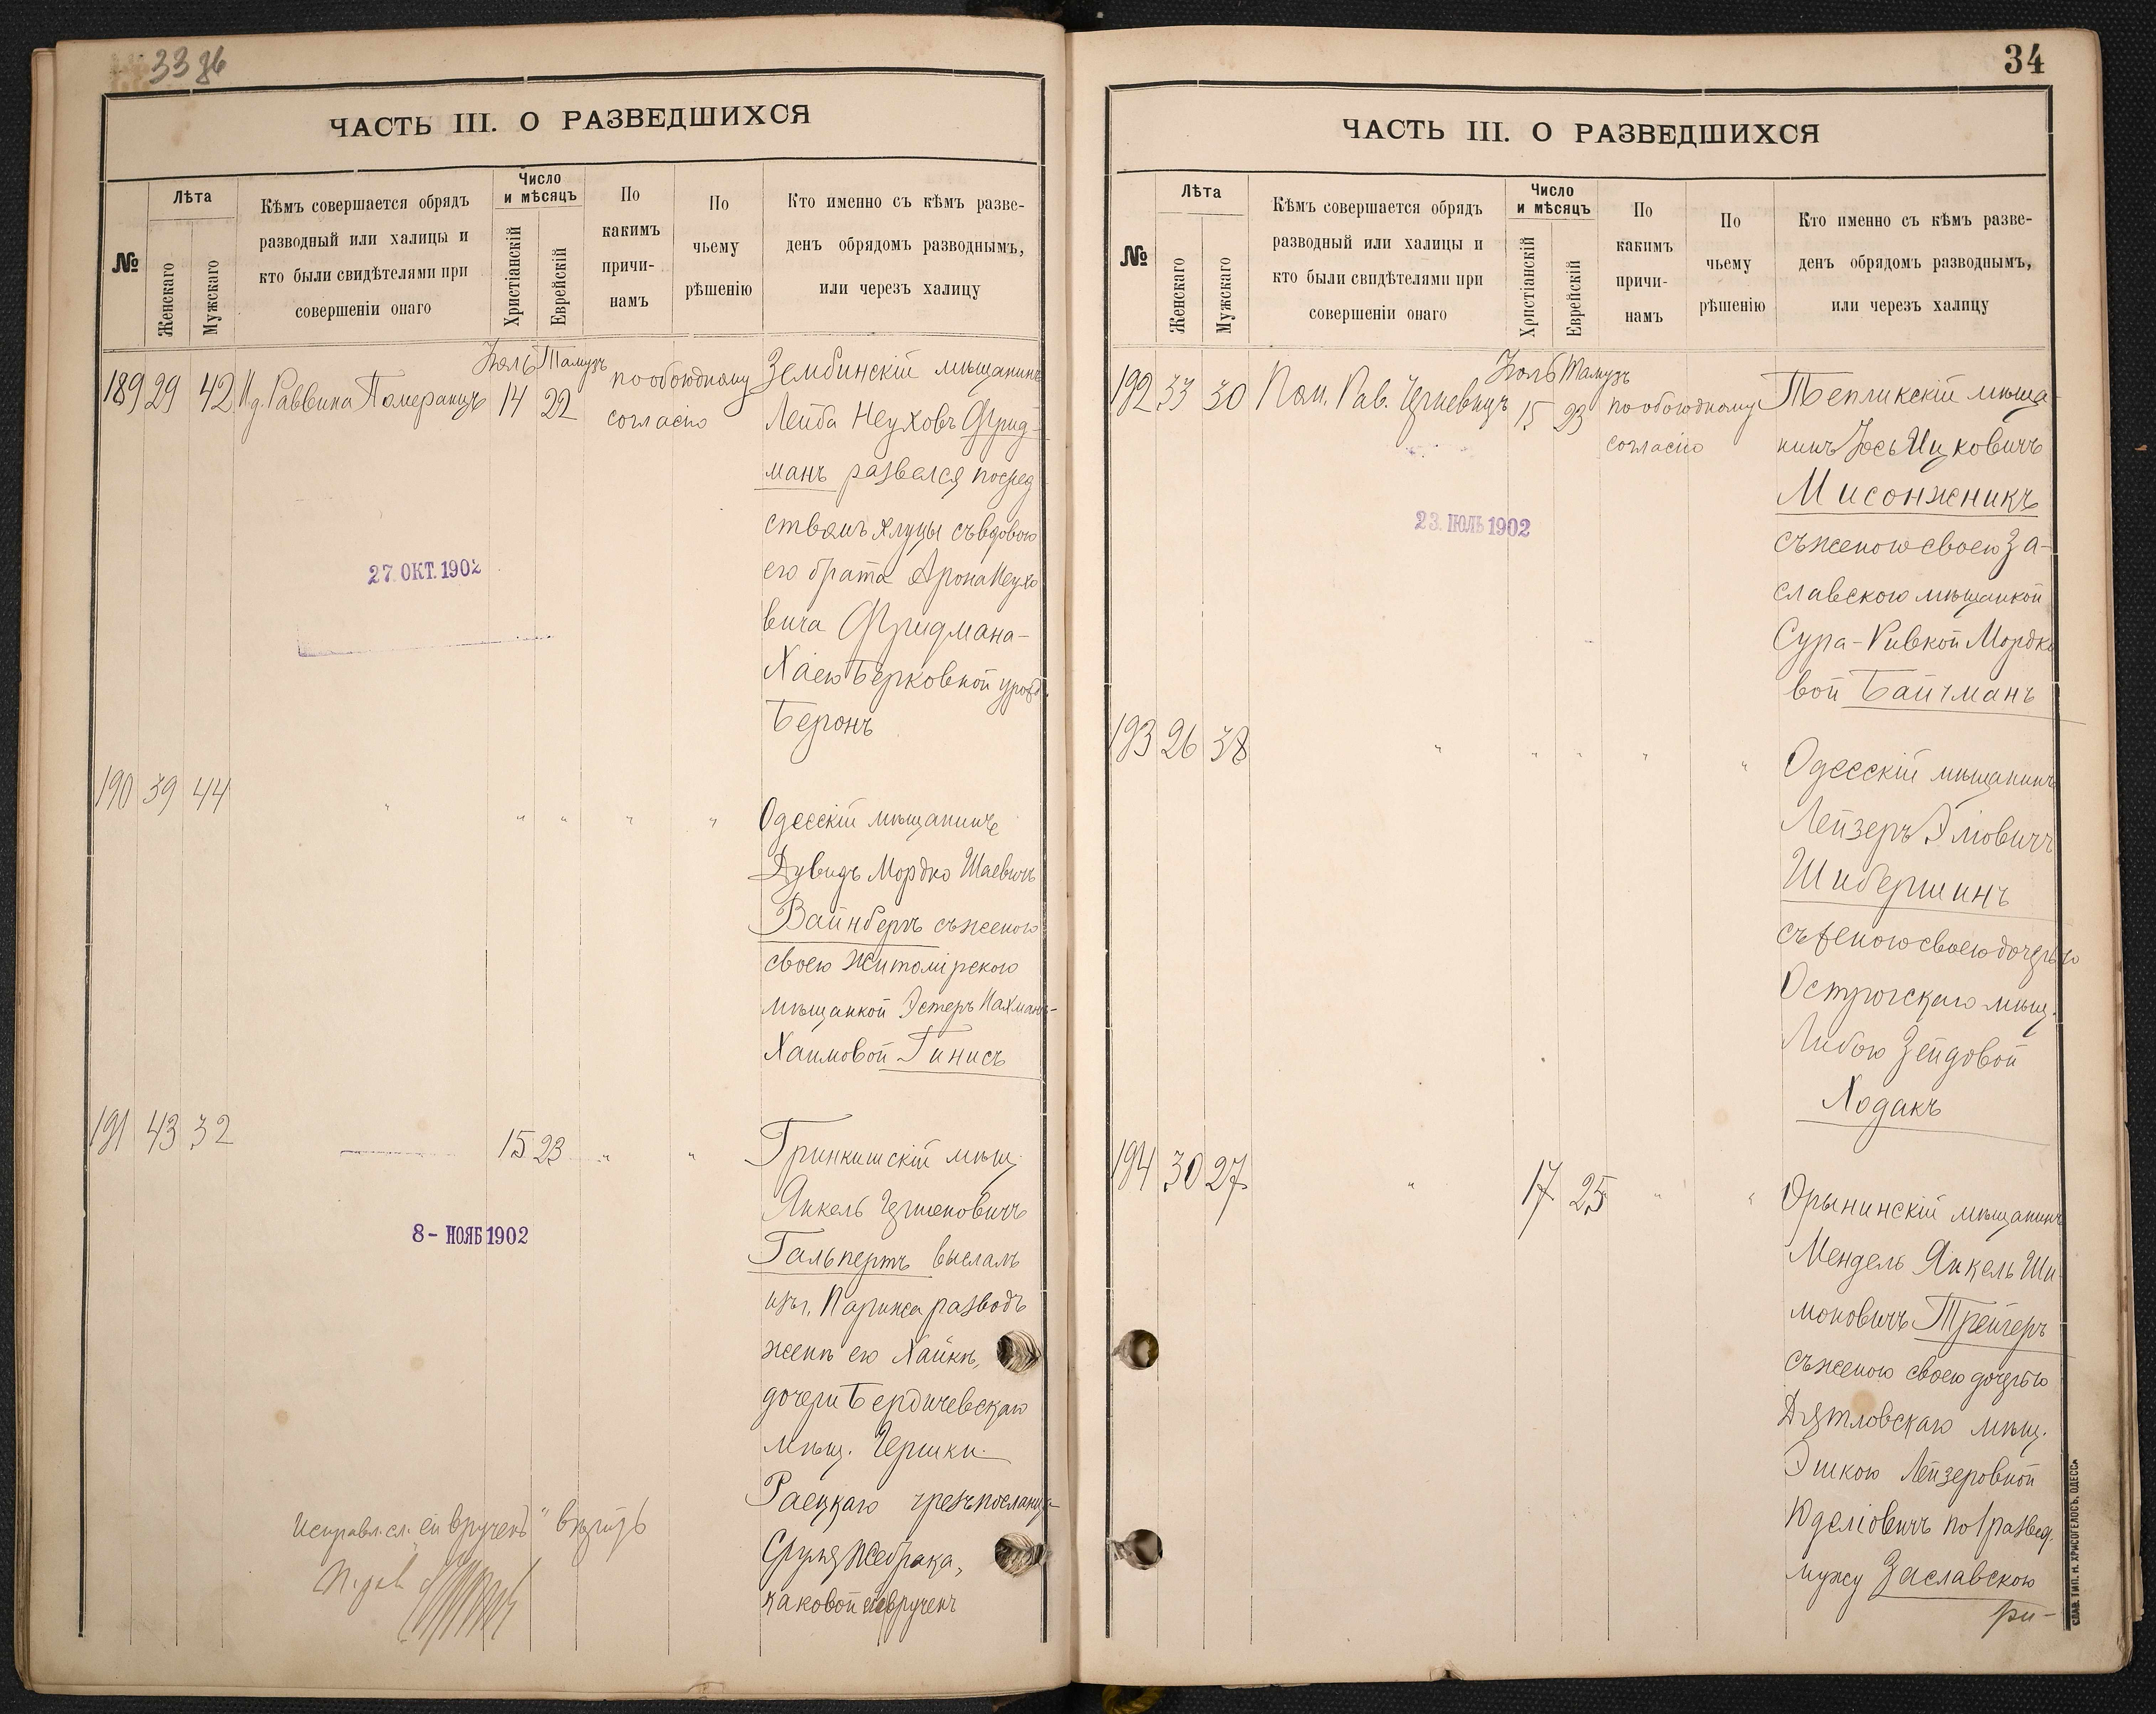 33 зв
ЧАСТЬ III. О РАЗВЕДШИХСЯ
№
Лѣта
Женскаго
Мужскаго
Кѣмъ совершается обрядъ
разводный или халицы и
кто были свидѣтелями при
совершеніи онаго
Число
и мѣсяцъ
Христіанскій
Еврейскій
По
какимъ
причи-
намъ
По
чьему
рѣшенію
Кто именно съ кѣмъ разве-
денъ обрядомъ разводнымъ,
или черезъ халицу
Іюль Тамузъ
189 29 42 И.д. Раввина Померанцъ 14 22 по обоюдному
согласію
Зембинскій мѣщанинъ
Лейба Неуховъ Фрид-
манъ развелся посред
ствомъ хлуцы съ вдовою
его брата Арона Неухо
вича Фридмана-
Хаею Берковной урожд.
Беронъ
27. ОКТ. 1902
190 39 44 " " " " "
Одесскій мѣщанинъ
Дувидъ Мордко Шаевичъ
Вайнберъ съ женою
своею Житомірскою
мѣщанкой Эстеръ Нахманъ-
Хаимовой Гинисъ
191 43 32 15 23 " "
Гринкишскій мѣщ.
Янкель Гершеновичъ
Гальпертъ выслалъ
изъ г. Парижа разводъ
женѣ его Хайкѣ,
дочери Бердичевскаго
мѣщ. Гершки
Раецкаго чрезъ посланца
Сруля Жебрака,
каковой ей врученъ
8 - НОЯБ 1902
Исправл. сл. "ей врученъ" вѣрить
И. рав.
34
ЧАСТЬ III. О РАЗВЕДШИХСЯ
№
Лѣта
Женскаго
Мужскаго
Кѣмъ совершается обрядъ
разводный или халицы и
кто были свидѣтелями при
совершеніи онаго
Число
и мѣсяцъ
Христіанскій
Еврейскій
По
какимъ
причи-
намъ
По
чьему
рѣшенію
Кто именно съ кѣмъ разве-
денъ обрядомъ разводнымъ,
или черезъ халицу
Іюль Тамузъ
192 33 30 Пом. Рав. 15 23 по обоюдному
согласію
Тепликскій мѣща-
нинъ Іось Ицковичъ
Мисонжникъ
съ женою своею За-
славскою мѣщанкой
Сура-Ривкой Мордко
вой Байчманъ
23. ІЮЛЬ 1902
193 26 38 " " " " "
Одесскій мѣщанинъ
Лейзеръ Эліовичъ
Шибершинъ
съ женою своею дочерью
Острогскаго мѣщ.
Либою Зейдовой
Ходакъ
194 30 27 " 17 25 " "
Орынинскій мѣщанинъ
Мендель Янкель Ши-
моновичъ Трейгеръ
съ женою своею дочерью
Дятловскаго мѣщ.
Эшкою Лейзеровной
Юделіовичъ по I развед.
мужу Заславскою
ри-
СЛАВ. ТИП. Н. ХРИСОГЕЛОСЪ, ОДЕССА